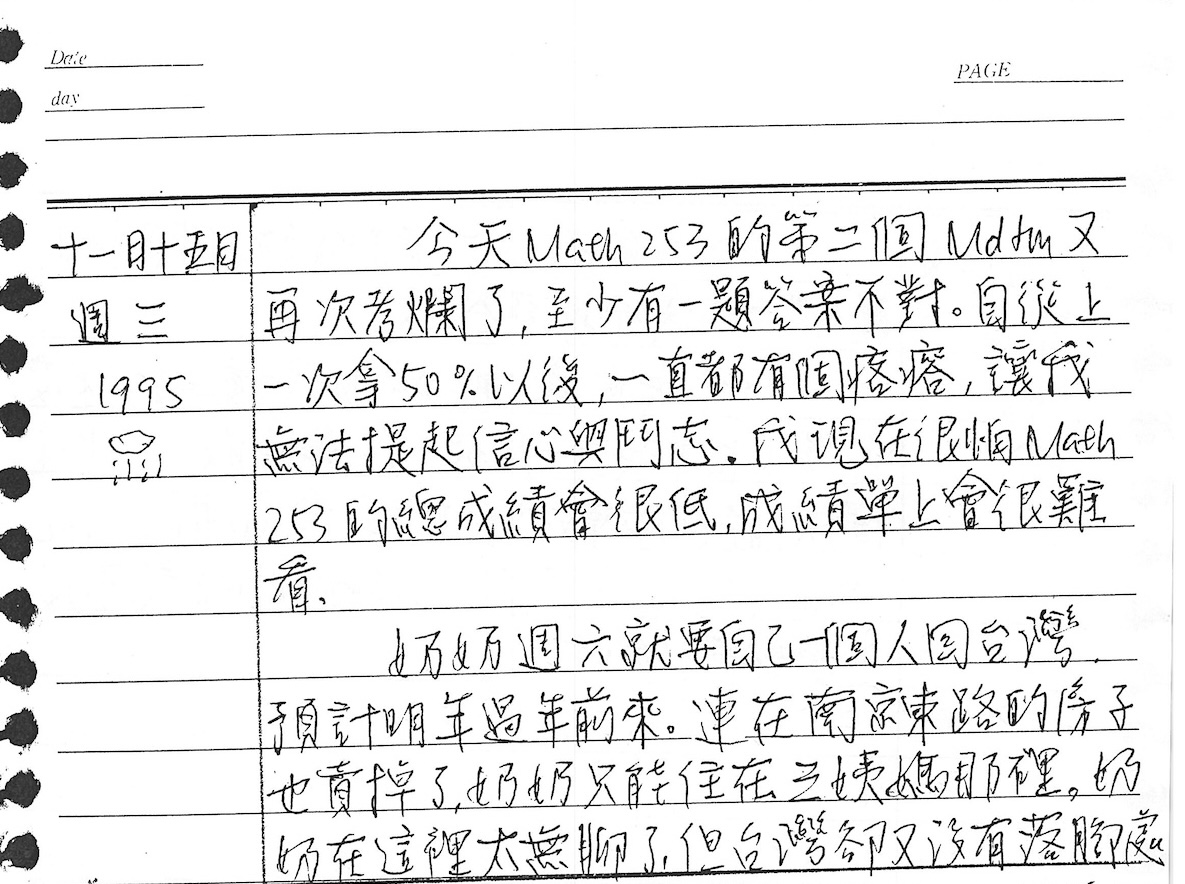 Date
day
PAGE
十一月十五日
週三
1995
今天Math 253的第二個Mdtm又
再次考爛了,至少有一題答案不對。自從上
一次拿50%以後,一直都有個疙瘩,讓我
無法提起信心與鬥志。我現在很怕Math
253的總成績會很低,成績單上會很難
看。
奶奶週六就要自己一個人回台灣,
預計明年過年前來。連在南京東路的房子
也賣掉了,奶奶只能住在三姨媽那裡。奶
奶在這裡太無聊了,但台灣卻又沒有落腳處